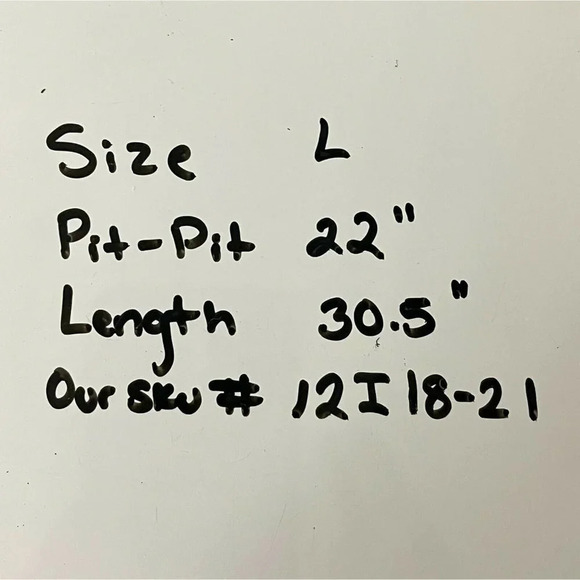 Size L
Pit-Pit 22"
Length 30.5"
Our SKU # 12I18-21